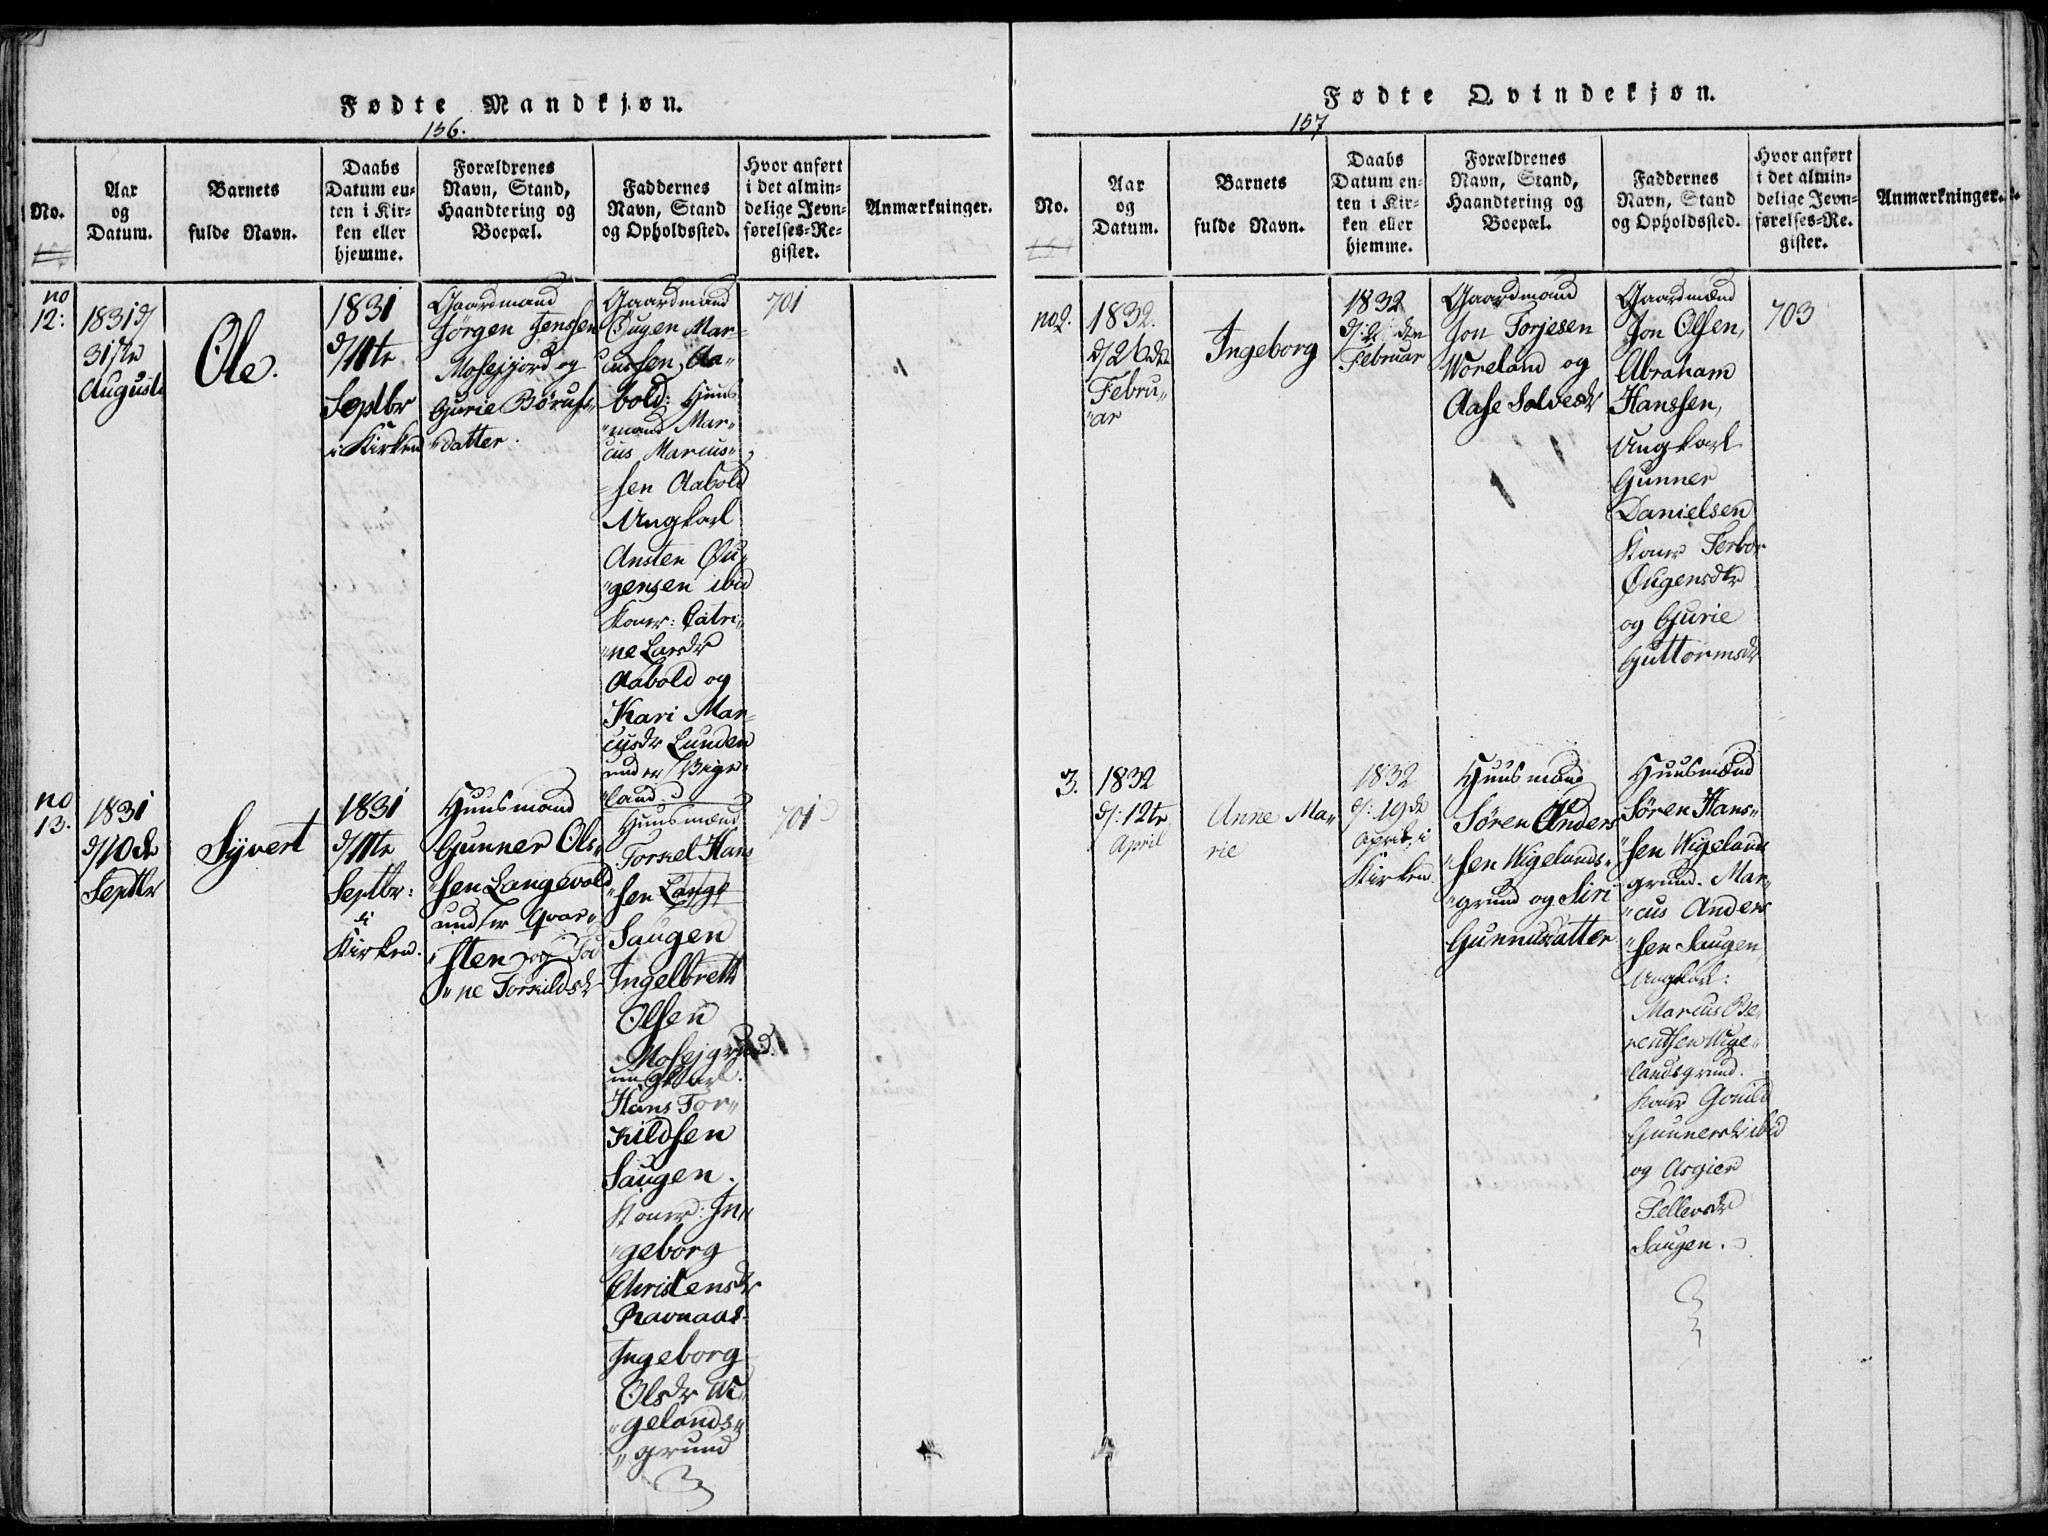 Fødte Mandkjøn.
156.
No.
Aar
og
Datum.
Barnets
fulde Navn.
Daabs
Datum en-
ten i Kir-
ken eller
hjemme.
Forældrenes
Navn, Stand,
Haandtering og
Boepæl.
Faddernes
Navn, Stand
og Opholdssted.
Hvor anført
i det almin-
delige Jevn-
førelses-Re-
gister.
Anmærkninger.
no
12:
1831 d/
31te
Augusti
Ole.
1831
d/11te
Septbr
i Kirken
Gaardmand
Jörgen Jenssen
Mosejord og
Gurie Børufs-
"datter.
Gaardmand
Øugen Mar-
cussen, Aa-
bold: Huus
"mand Mar"
cus Marcus"
sen Aabold
Ungkarl
Ansten Øu"
"gensen ibid
Koner: Catri"
"ne Larsdr
Aabold og
Kari Mar-
cusdr Lunden
under Vige-
"land.
701
no
13.
1831
d/10de
Septbr
Syvert
1831
d/11te
Septbr:
i
Kirken.
Huusmand
Gunner Ols"
"sen Langevold
under Qvar"
"sten og To
"ne Torkildsdr
Huusmænd
Torkel Hans
"sen Lange
Saugen
Ingelbrett
Olsen
Mosejgrund.
ungkarl.
Hans Tor"
Kildsen
Saugen.
Koner: In"
"geborg
Christensdr
Ravnaas
Ingeborg
Olsdr Wi"
"gelands"
"grund
701
Fødte Qvindekjøn.
157
No.
Aar
og
Datum.
Barnets
fulde Navn.
Daabs
Datum en-
ten i Kir-
ken eller
hjemme.
Forældrenes
Navn, Stand,
Haandtering og
Boepæl.
Faddernes
Navn, Stand
og Opholdssted.
Hvor anført
i det almin-
delige Jevn-
førelses-Re-
gister.
Anmærkninger.
no 2.
1832.
d/26de
Febru"
"ar
Ingeborg
1832
Februar
Gaardmand
Jon Torjesen
Woreland og
Aase Solvesdr
Gaardmænd
Jon Olsen,
Abraham
Hanssen,
Ungkarl
Gunner
Danielsen
Koner Terbor
Øugensdtr
og Gurie
Guttormsdr
703
3.
1832
d/: 12te
April
Anne Ma"
rie
1832
d/: 19de
April i
Kirken
Huusmand
Søren Anders
"sen Wigelands"
"grund og Siri
Gunnersdatter
Huusmænd
Søren Hans"
"sen Wigelands
grund. Mar"
"cus Anders
"sen Saugen
Ungkarl:
Marcus Be"
rentsen Wige"
"landsgrund.
Koner Gonild
Gunnersdr ibid
og Asgier
Tellevsdr
Saugen.